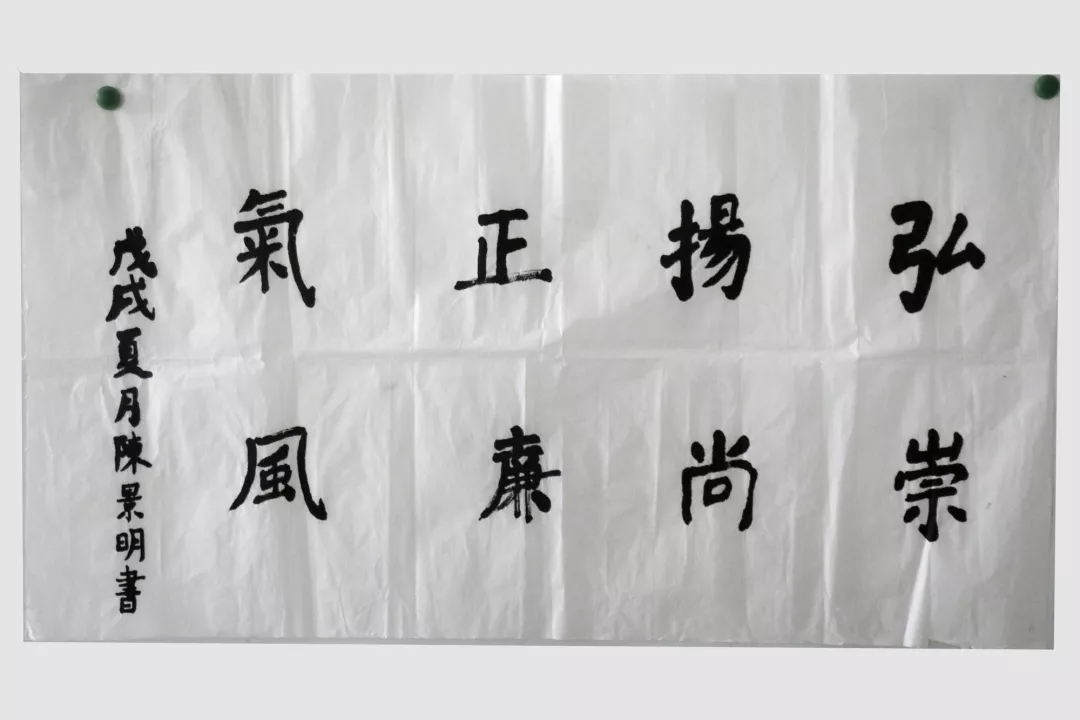 弘揚正氣
崇尚廉風
戊戌夏月陳景明書